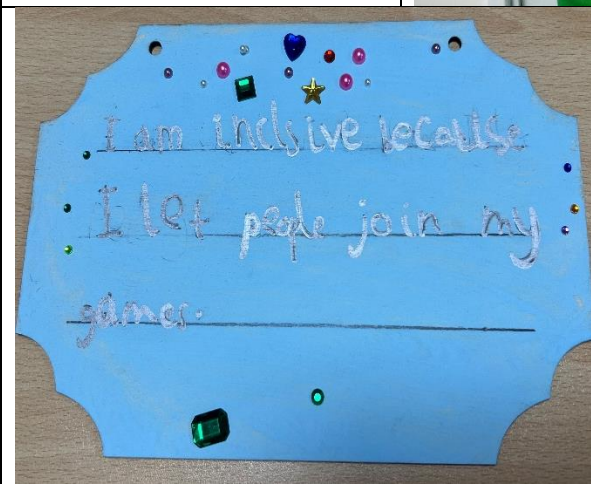 I am inclsive because
I let people join my
games.